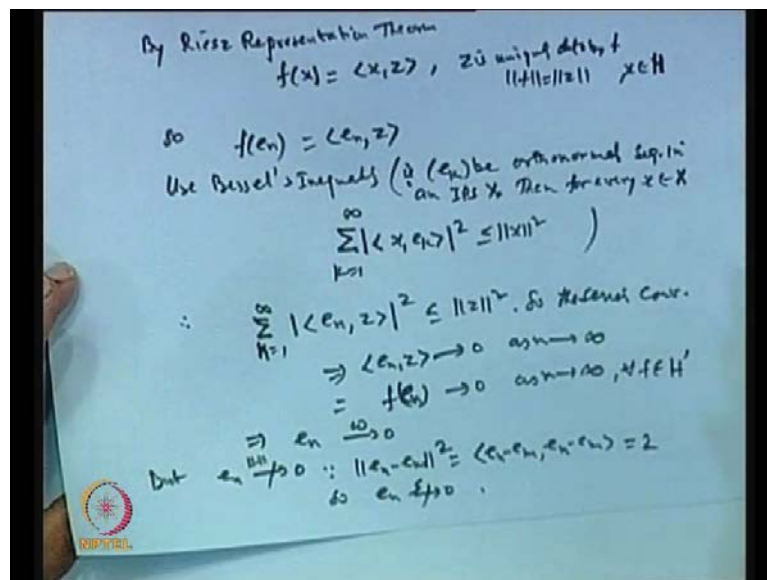 By Riesz Representation Theorem
f(x) = <x, z> , z is unique dets by f
||f|| = ||z|| x ∈ H
so f(en) = <en, z>
Use Bessel's Inequality ( (ek) be orthonormal seq. in
an IPS X. Then for every x ∈ X
∞
∑ |<x, ek>|² ≤ ||x||² )
k=1
∴ ∞
∑ |<en, z>|² ≤ ||z||². So the series conv.
n=1
⇒ <en, z> → 0 as n → ∞
= f(en) → 0 as n → ∞, ∀ f ∈ H'
⇒ en ω→ 0
But en ||·||↛ 0 ∵ ||en - em||² = <en - em, en - em> = 2
so en s↛ 0 .
NPTEL